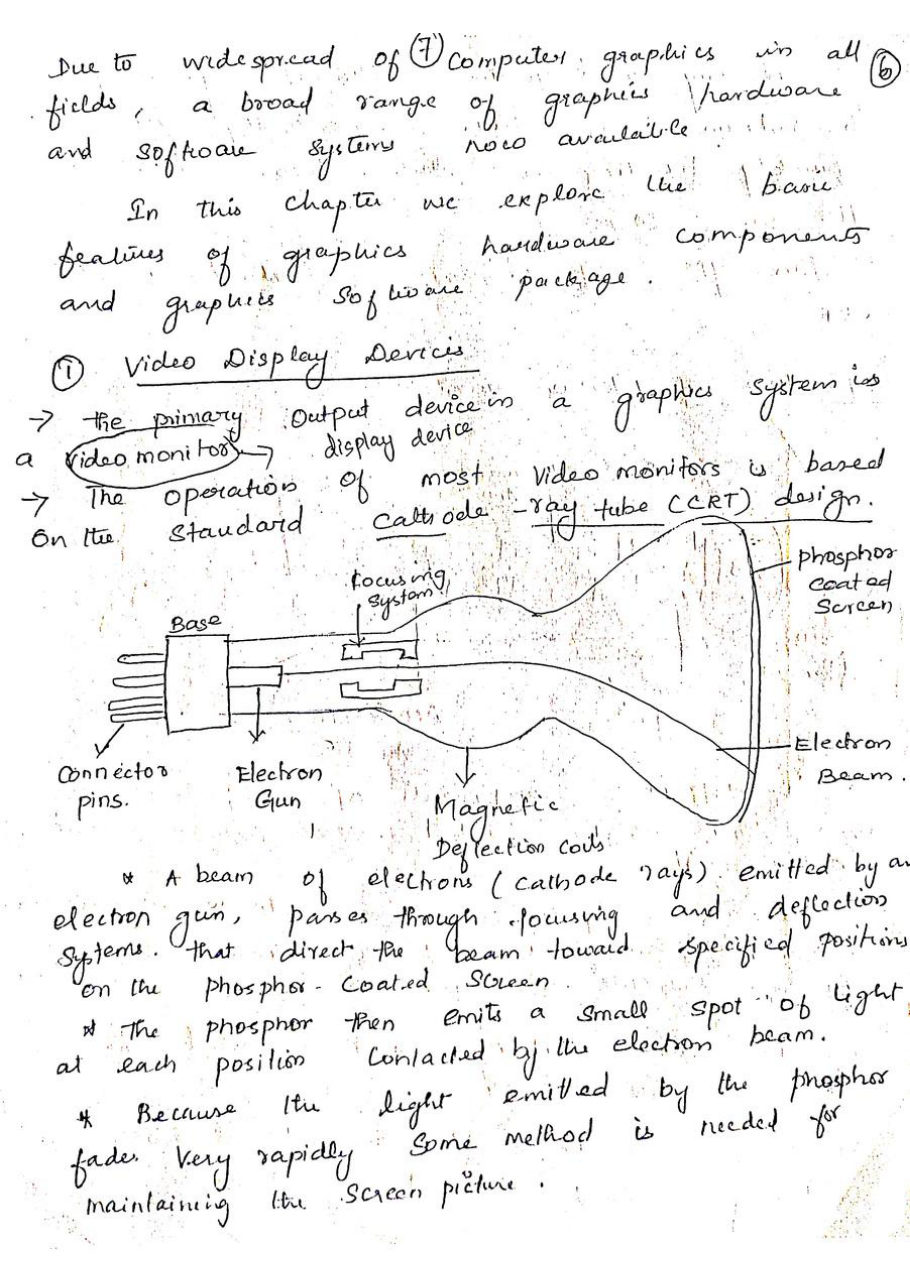 Due to widespread of (7) Computer graphics in all (6)
fields, a broad range of graphics hardware
and software systems now available
In this chapter we explore the basic
features of graphics hardware components
and graphics software package.
① Video Display Devices
→ the primary output device in a graphics system is
a video monitor → display device
→ The operation of most video monitors is based
On the standard cathode-ray tube (CRT) design.
focusing
system
phosphor
coated
screen
Base
Connector
pins.
Electron
Gun
Magnetic
Deflection coils
Electron
Beam.
* A beam of electrons (cathode rays) emitted by an
electron gun, passes through focusing and deflection
systems. that direct the beam toward specified positions
on the phosphor-coated screen.
* The phosphor then emits a small spot of light
at each position contacted by the electron beam.
* Because the light emitted by the phosphor
fades very rapidly some method is needed for
maintaining the screen picture.